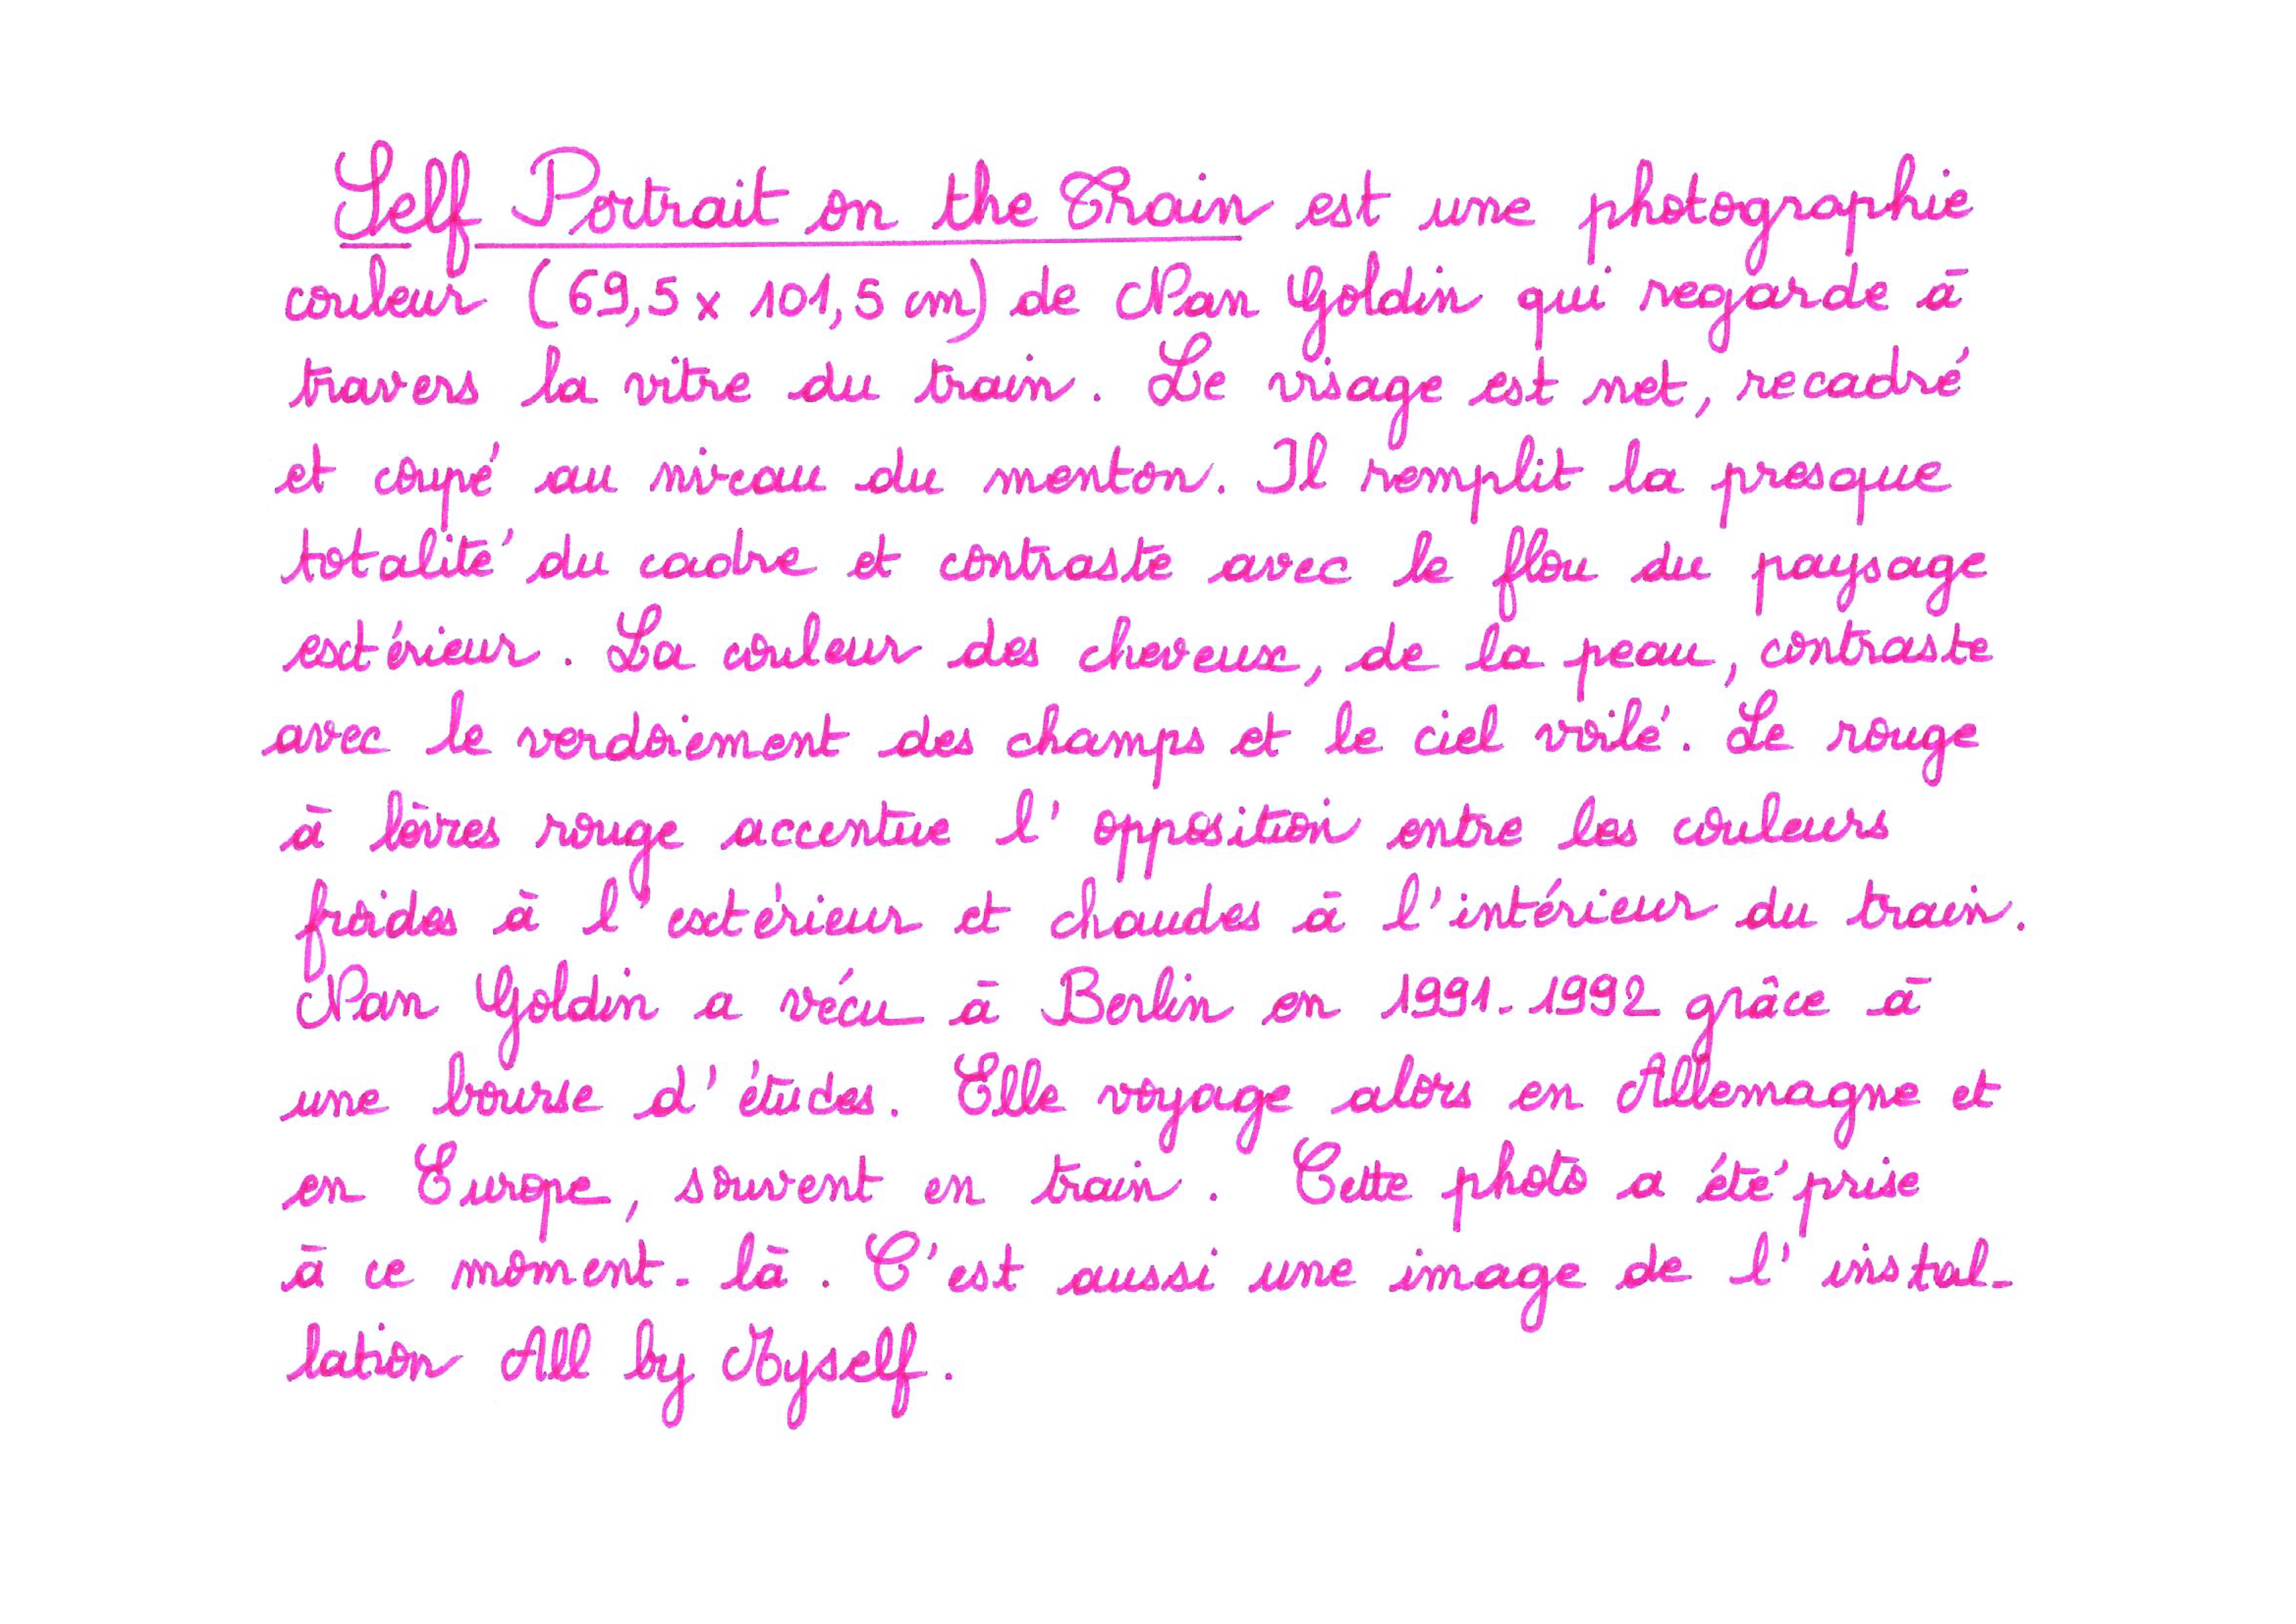 Self Portrait on the Train est une photographie
couleur (69,5 x 101,5 cm) de Nan Goldin qui regarde à
travers la vitre du train. Le visage est net, recadré
et coupé au niveau du menton. Il remplit la presque
totalité du cadre et contraste avec le flou du paysage
extérieur. La couleur des cheveux, de la peau, contraste
avec le verdoiement des champs et le ciel voilé. Le rouge
à lèvres rouge accentue l'opposition entre les couleurs
froides à l'extérieur et chaudes à l'intérieur du train.
Nan Goldin a vécu à Berlin en 1991-1992 grâce à
une bourse d'études. Elle voyage alors en Allemagne et
en Europe, souvent en train. Cette photo a été prise
à ce moment-là. C'est aussi une image de l'instal-
lation All by Myself.